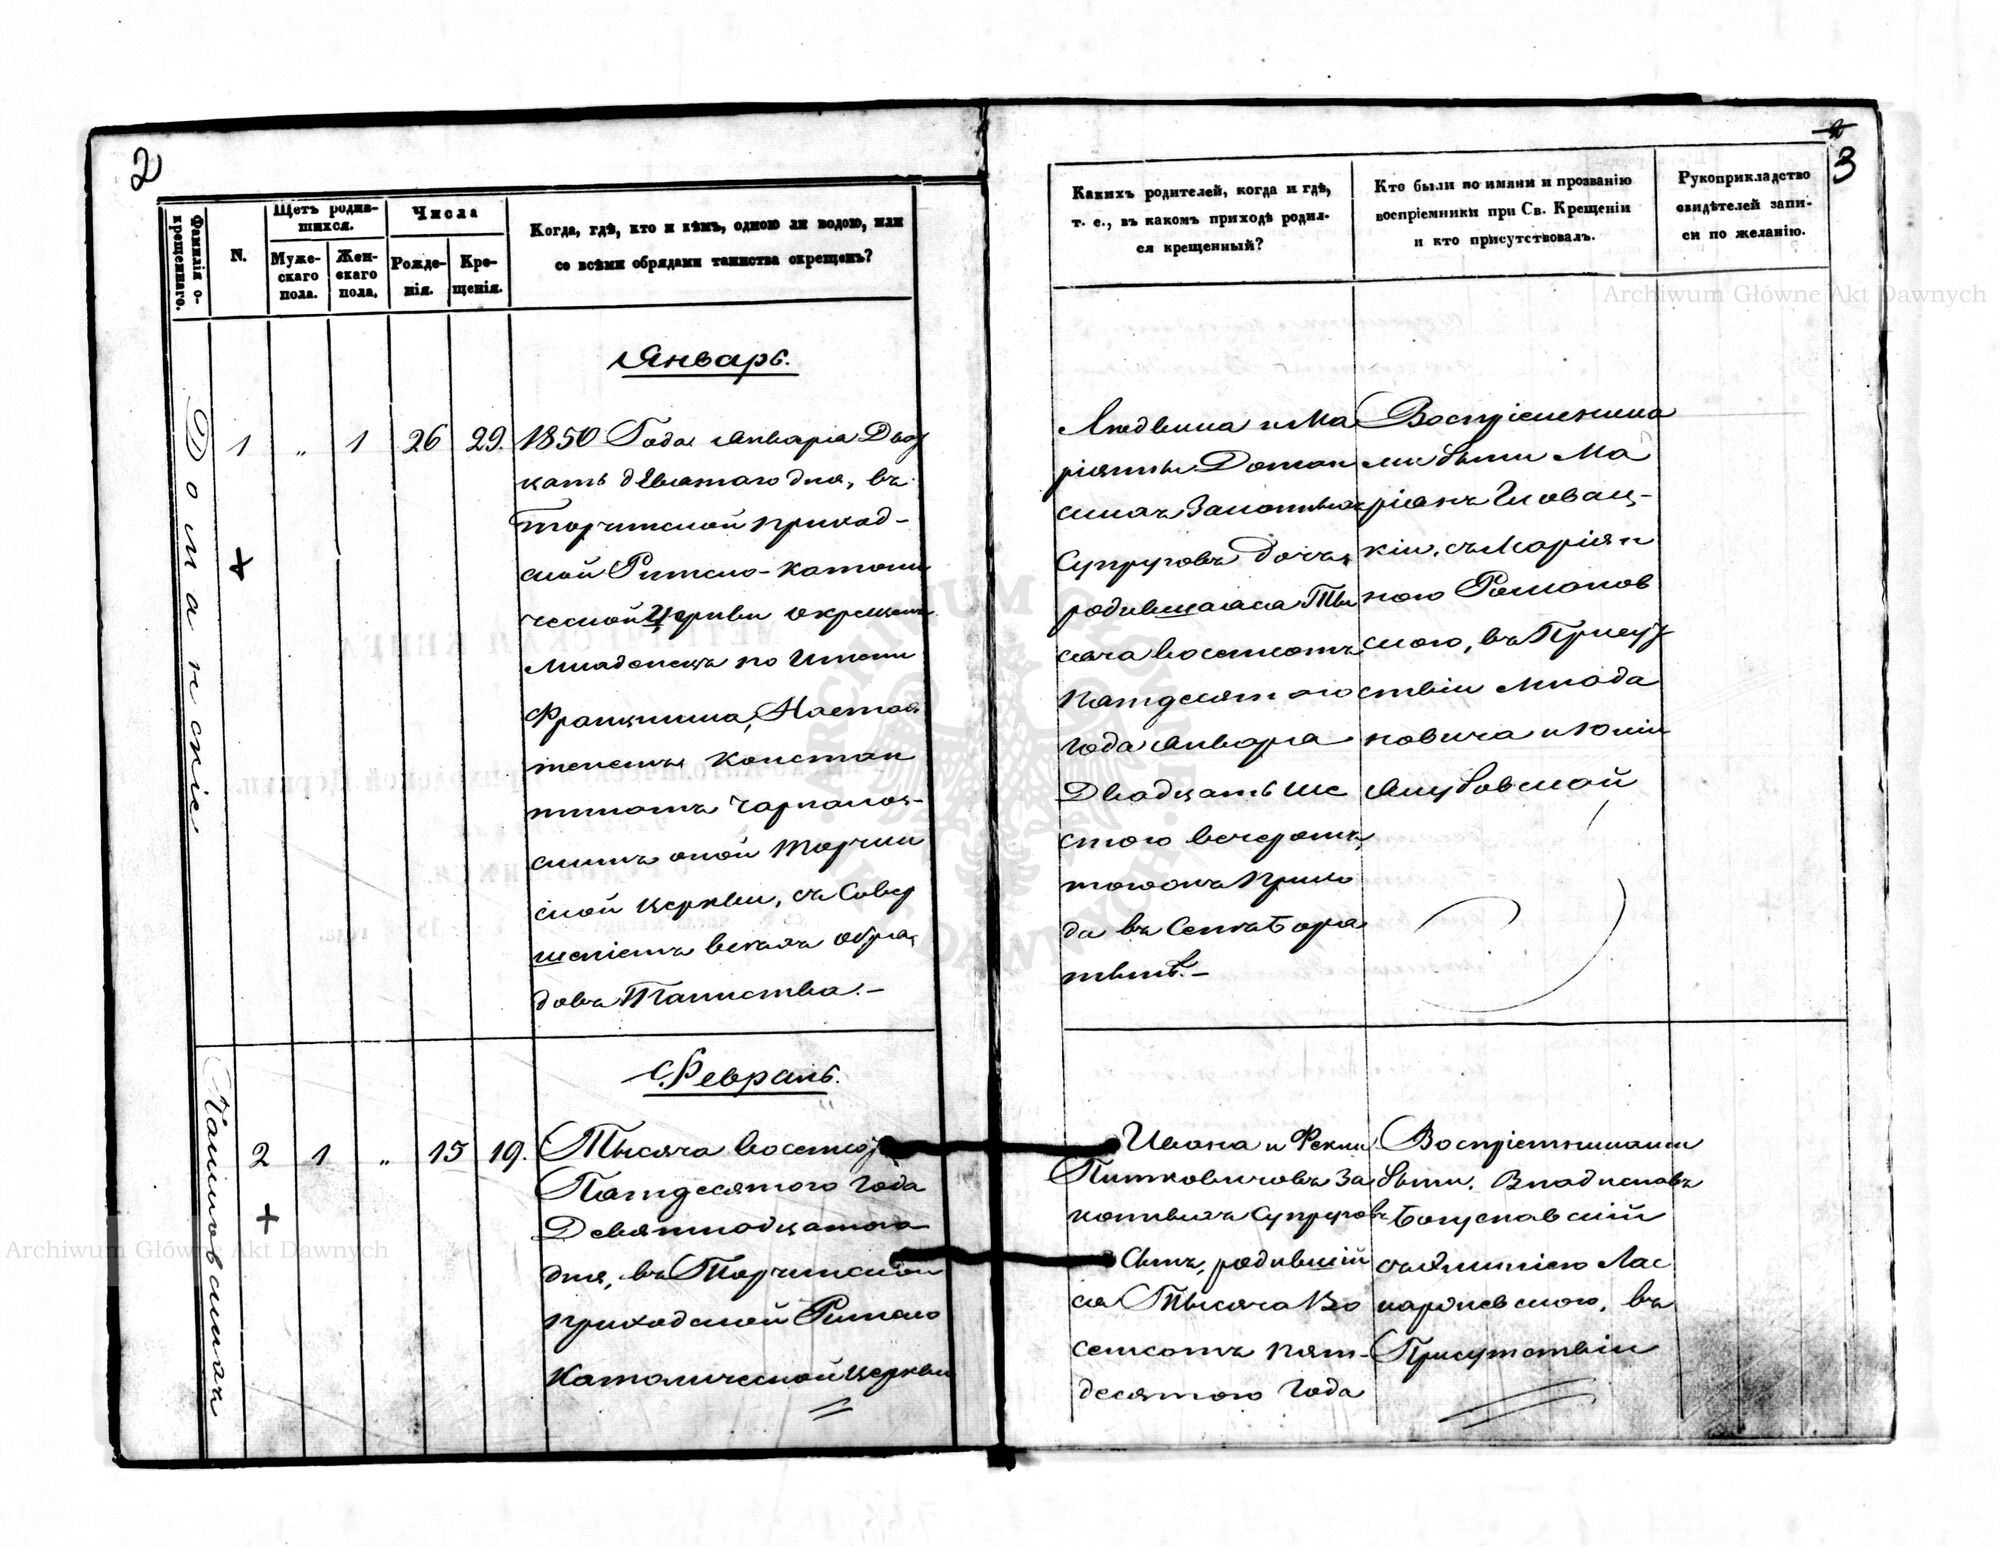 2
Фамилія о-
крещеннаго.
N.
Щетъ родив-
шихся.
Муже-
скаго
пола.
Жен-
скаго
пола.
Числа
Рожде-
нія.
Кре-
щенія.
Когда, гдѣ, кто и кѣмъ, одною ли водою, или
со всѣми обрядами таинства окрещенъ?
Январь.
Доманскіе
1 " 1 26 29.
1850 Года Января Двад
цать девятаго дня, въ
Торчинской приход-
ской Римско-католи
ческой Церкви окрещенъ
Младенецъ по Имени
Францишка, Настоя
телемъ Констан
тиномъ
скимъ оной Торчин
ской церкви, съ Совер
шеніемъ всехъ обря,
довъ Таинства.-
Февраль.
2 1 " 15 19.
Тысяча восемсо
Пятдесятого Года
Девятнадцатого
дня, въ Торчинской
приходской Римско
Католической церкви
3
Какихъ родителей, когда и гдѣ,
т. е., въ какомъ приходѣ родил-
ся крещенный?
Кто были по имяни и прозванію
воспріемники при Св. Крещеніи
и кто присутствовалъ.
Рукоприкладство
свидѣтелей запи-
си по желанію.
Людвика и Ма
ріянны Доман
скихъ Законныхъ
Супруговъ дочь,
родившаяся Ты
сяча восемсотъ
пятдесятого
года Января
Двадцать ше
стого вечеромъ,
тогожъ прихо
да въ
Воспріемника
ми были Ма
ріянъ Гловац-
кій, съ Маріян
ною Романов
скою, въ Присут
ствіи Млода
новича и Юліи
Якубовской
Ивана и Фекли
Питковичовъ За
конныхъ Супруговъ
Сынъ, родившій
ся Тысяча Во
семсотъ пят-
десятого Года
Воспріемниками
были. Владиславъ
Богуславскій
въ
Присутствіи
Archiwum Główne Akt Dawnych
Archiwum Główne Akt Dawnych
ARCHIWUM GŁÓWNE AKT DAWNYCH